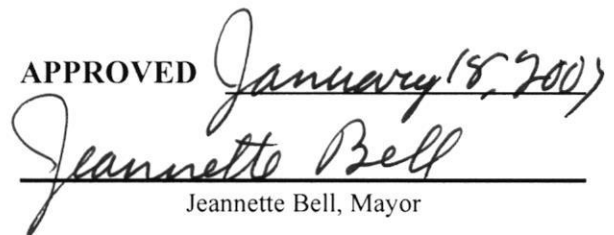 APPROVED January 18, 2007
Jeannette Bell
Jeannette Bell, Mayor